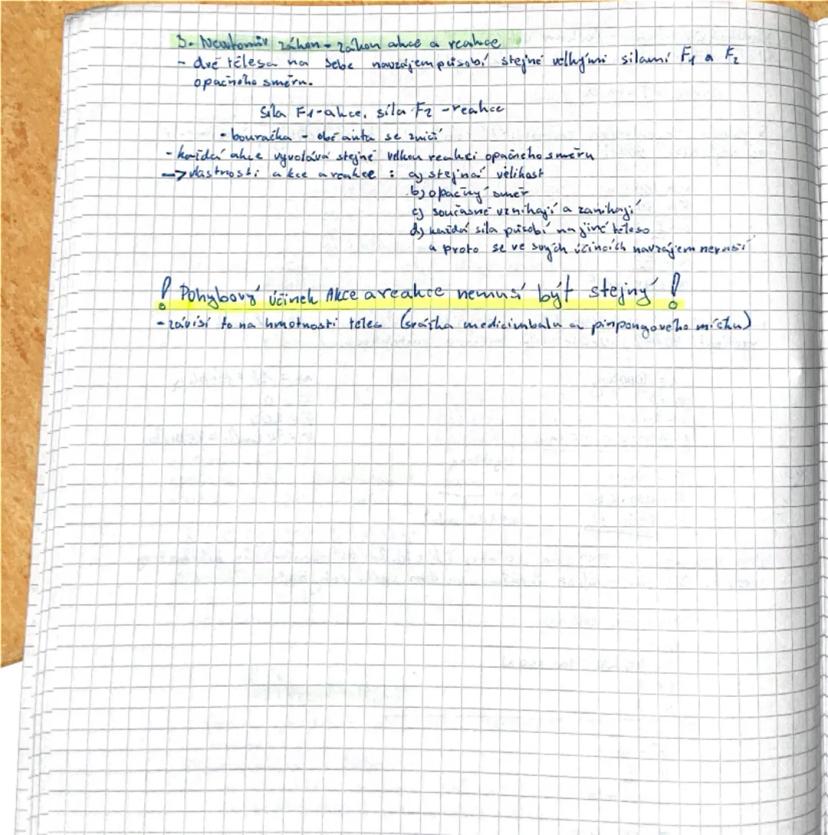 3. Newtonův zákon - zákon akce a reakce
- dvě tělesa na sebe navzájem působí stejně velkými silami F1 a F2
opačného směru.
Síla F1-akce, síla F2 -reakce
- bouračka - obě auta se zničí
- každá akce vyvolává stejně velkou reakci opačného směru
-> vlastnosti akce a reakce : a) stejná velikost
b) opačný směr
c) současně vznikají a zanikají
d) každá síla působí na jiné těleso
a proto se ve svých účincích navzájem neruší
! Pohybový účinek Akce a reakce nemusí být stejný !
- závisí to na hmotnosti těles (srážka medicimbalu a pinpongového míčku)